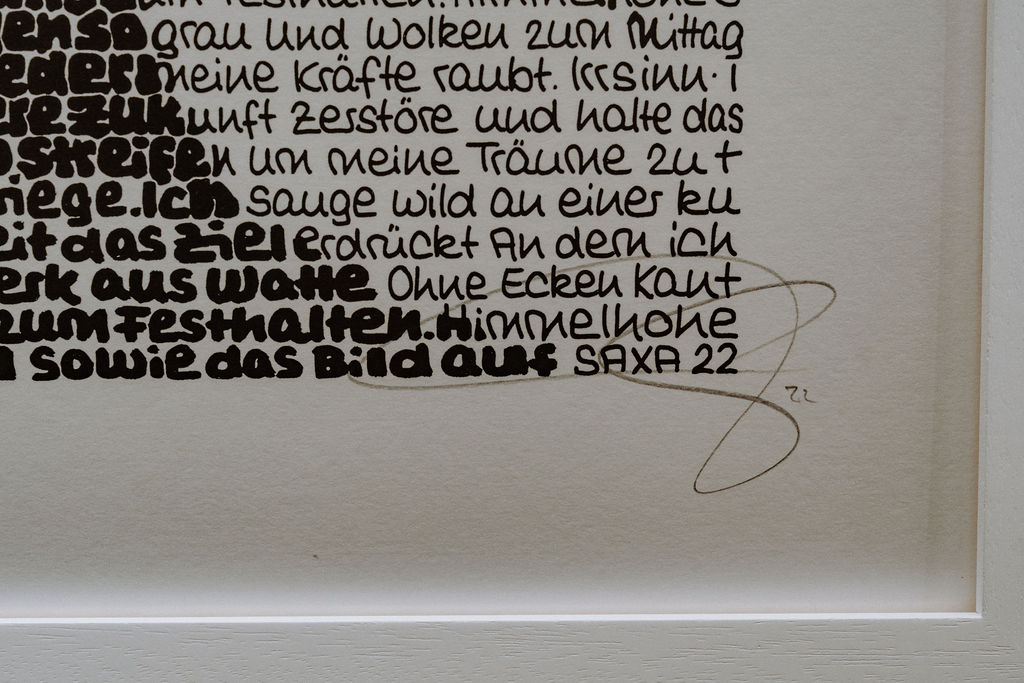 grau und Wolken zum Mittag
meine Kräfte raubt. Irrsinn. I
zukunft zerstöre und halte das
streifen um meine Träume zu t
riege. Ich sauge wild an einer ku
eit das Ziel erdrückt An dem ich
erk aus Watte Ohne Ecken Kant
zum Festhalten. Himmelhohe
sowie das Bild auf SAXA 22
22